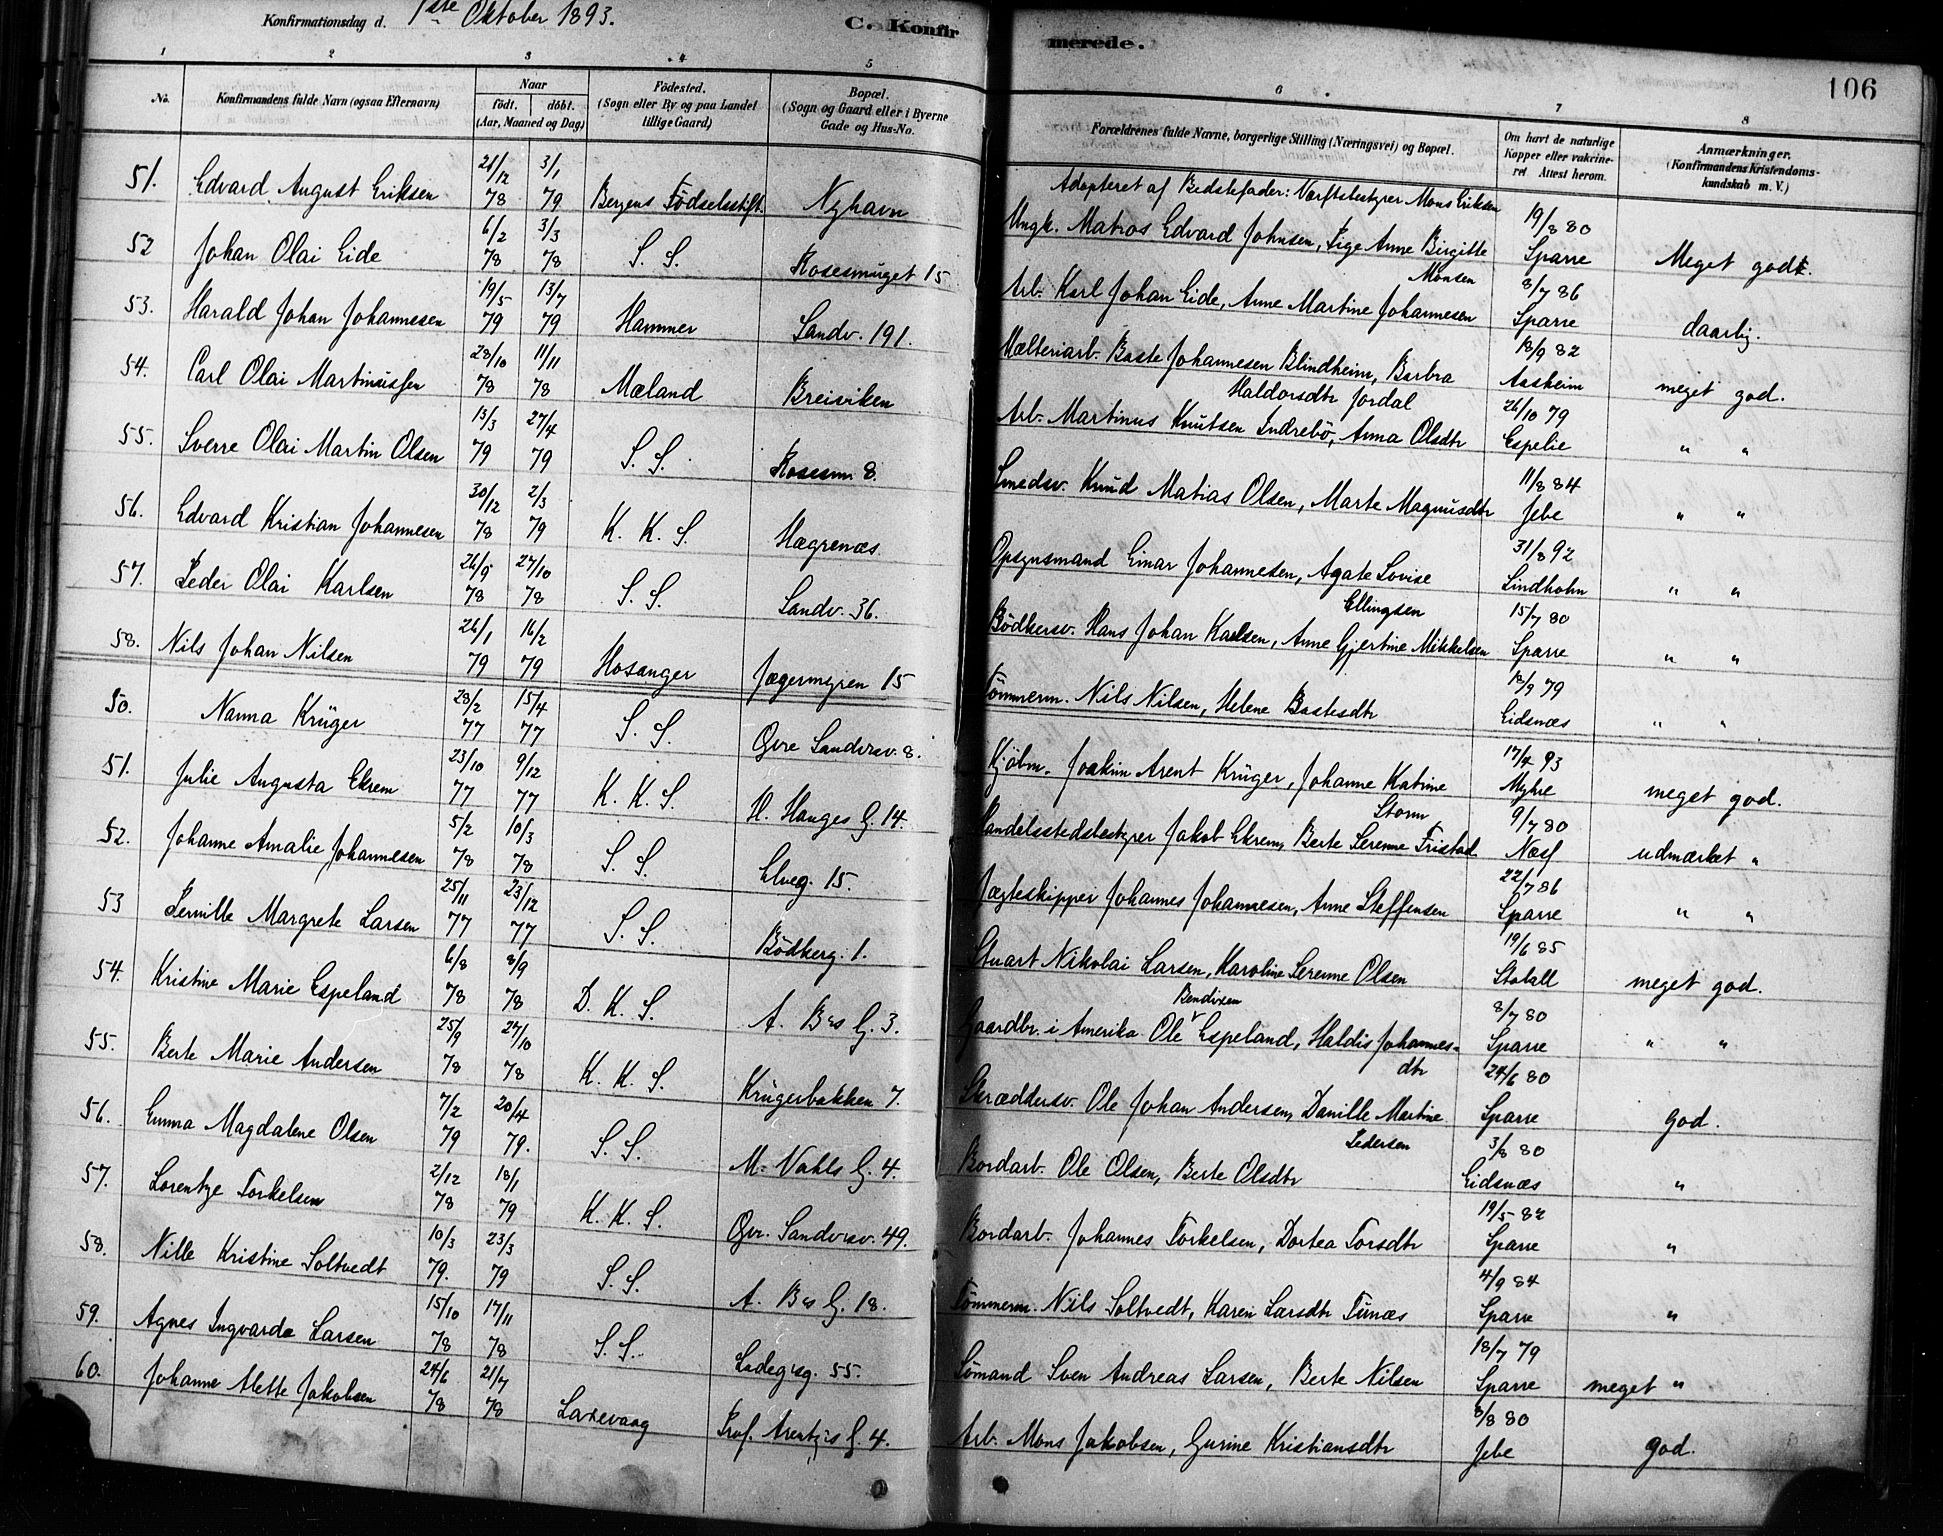 Konfirmationsdag d. 1ste Oktober 1893.
C. Konfirmerede.
106
1 2 3 4 5 6 7 8
No.
Konfirmandens fulde Navn (ogsaa Efternavn)
Naar
födt. döbt.
(Aar, Maaned og Dag)
Födested.
(Sogn eller By og paa Landet
tillige Gaard)
Bopæl.
(Sogn og Gaard eller i Byerne
Gade og Hus-No.
Forældrenes fulde Navne, borgerlige Stilling (Næringsvei) og Bopæl.
Om havt de naturlige
Kopper eller vakcine-
ret Attest herom.
Anmærkninger.
(Konfirmandens Kristendoms-
kundskab m. V.)
51. Edvard August Eriksen 21/12 78 3/1 79 Bergens Födselsstift. Nyhavn
Adopteret af Bedstefader: Værftsbestyrer Mons Eriksen
Ungk. Matros Edvard Johnsen, Pige Anne Birgitte Monsen 19/8 80 Sparre Meget godt.
52 Johan Olai Eide 6/2 78 3/3 78 S. S. Rosesmuget 15
Arb. Karl Johan Eide, Anne Martine Johannesen 8/7 86 Sparre daarlig.
53. Harald Johan Johannesen 19/5 79 13/7 79 Hammer Sandv. 191.
Mælteriarb. Baste Johannesen Blindheim, Barbra Haldorsdtr Jordal 18/9 82 Aasheim meget god.
54. Carl Olai Martinussen 28/10 78 11/11 78 Mæland Breiviken
Arb. Martinus Knutsen Indrebö, Anna Olsdtr 26/10 79 Espelie " "
55. Sverre Olai Martin Olsen 13/3 79 27/4 79 S. S. Rosesm. 8.
Smedsv. Knud Matias Olsen, Marte Magnusdtr 11/8 84 Jebe " "
56. Edvard Kristian Johannesen 30/12 78 2/3 79 K. K. S. Hægrenæs.
Opsynsmand Einar Johannesen, Agate Lovise Ellingsen 31/8 92 Lindholm " "
57. Peder Olai Karlsen 26/9 78 27/10 78 S. S. Sandv. 36.
Bödkersv. Hans Johan Karlsen, Anne Gjertine Mikkelsen 15/7 80 Sparre " "
58. Nils Johan Nilsen 26/1 79 16/2 79 Hosanger Jægermyren 15
Tömmerm. Nils Nilsen, Helene Bastesdtr 18/9 79 Eidsnæs " "
50. Nanna Krüger 28/2 77 15/4 77 S. S. Øvre Sandvsv. 8.
Kjöbm. Joakim Arent Krüger, Johanne Katrine Storm 17/4 93 Myhre meget god.
51. Julie Augusta Ekrem 23/10 77 9/12 77 K. K. S. H. Hauges G. 14.
Handelsstedsbestyrer Jakob Ekrem, Berte Serenne Fristad 9/7 80 Næss udmærket "
52. Johanne Amalie Johannesen 5/2 78 10/3 78 S. S. Elveg. 15.
Jægteskipper Johannes Johannesen, Anne Steffensen 22/7 86 Sparre " "
53 Pernille Margrete Larsen 25/11 77 23/12 77 S. S. Bödkerg. 1.
Stuart Nikolai Larsen, Karoline Serenne Olsen 19/6 85 meget god.
54. Kristine Marie Espeland 6/8 78 8/9 78 D. K. S. A. Bes G. 3.
Gaardbr. i Amerika Ole Bendixen Espeland, Haldis Johannesdtr 8/7 80 Sparre " "
55. Berte Marie Andersen 25/9 78 27/10 78 K. K. S. Krügerbakken 7.
Skræddersv. Ole Johan Andersen, Danille Martine Pedersen 24/6 80 Sparre god.
56. Emma Magdalene Olsen 7/2 79 20/4 79. S. S. M. Vahls G. 4.
Bordarb. Ole Olsen, Berte Olsdtr 3/8 80 Eidsnæs "
57. Lorentze Torkelsen 2/12 78 18/1 79 K. K. S. Øvr. Sandvsv. 49.
Bordarb. Johannes Torkelsen, Dortea Torsdtr 19/5 82 Sparre "
58. Nille Kristine Soltvedt 10/3 79. 23/3 79 S. S. A. Bes G. 18.
Tömmerm. Nils Soltvedt, Karen Larsdtr Tunæs 4/9 84 Sparre "
59. Agnes Ingvarda Larsen 15/10 78 17/11 78 S. S. Ladegsg. 55.
Sömand Sven Andreas Larsen, Berte Nilsen 18/7 79 Sparre meget "
60. Johanne Alette Jakobsen 24/6 78 21/7 78 Laxevaag Prof. Arentz's G. 4.
Arb. Mons Jakobsen, Gurine Kristiansdtr 3/8 80 Jebe god.